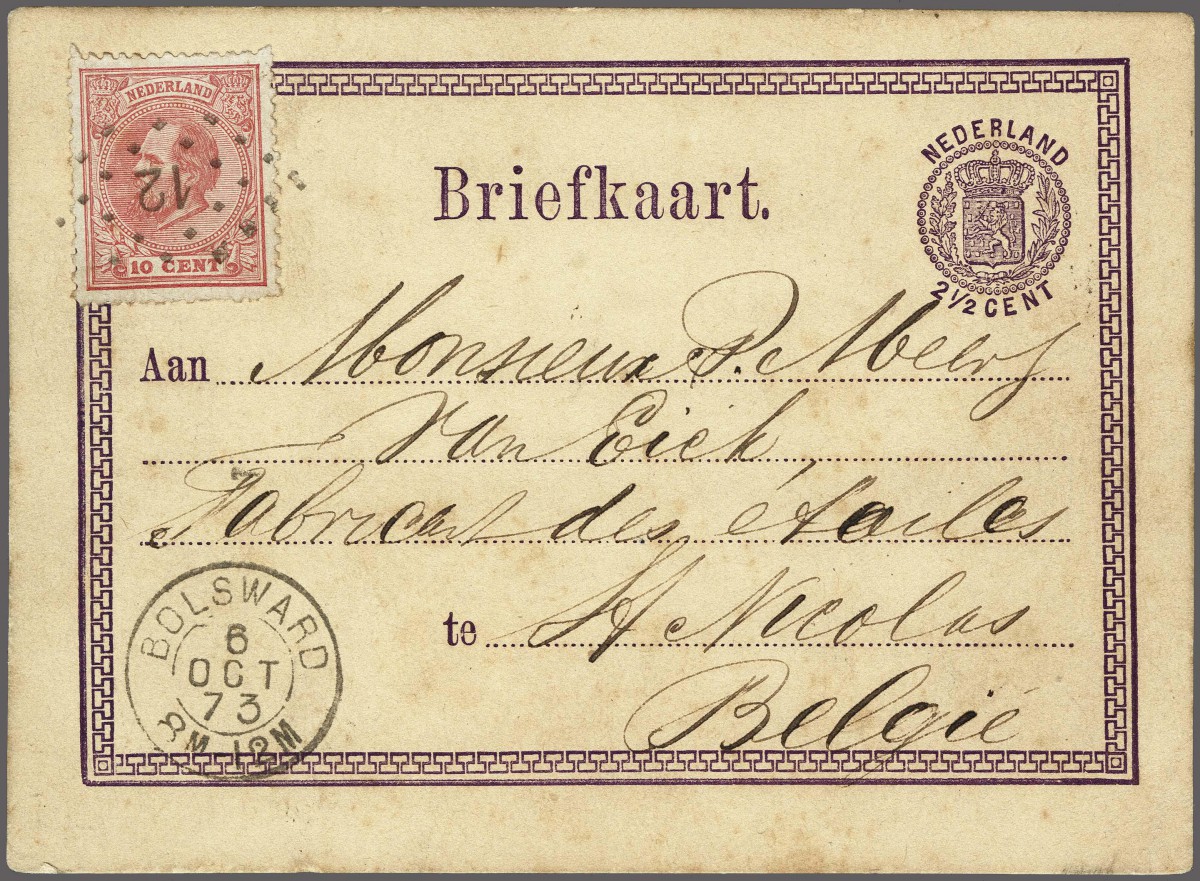 NEDERLAND
12
10 CENT
Briefkaart.
NEDERLAND
2 1/2 CENT
Aan Monsieur P. Meert
Van Eick,
Fabricant des étoiles
te St Nicolas
België
BOLSWARD
6
OCT
73
8M-12M